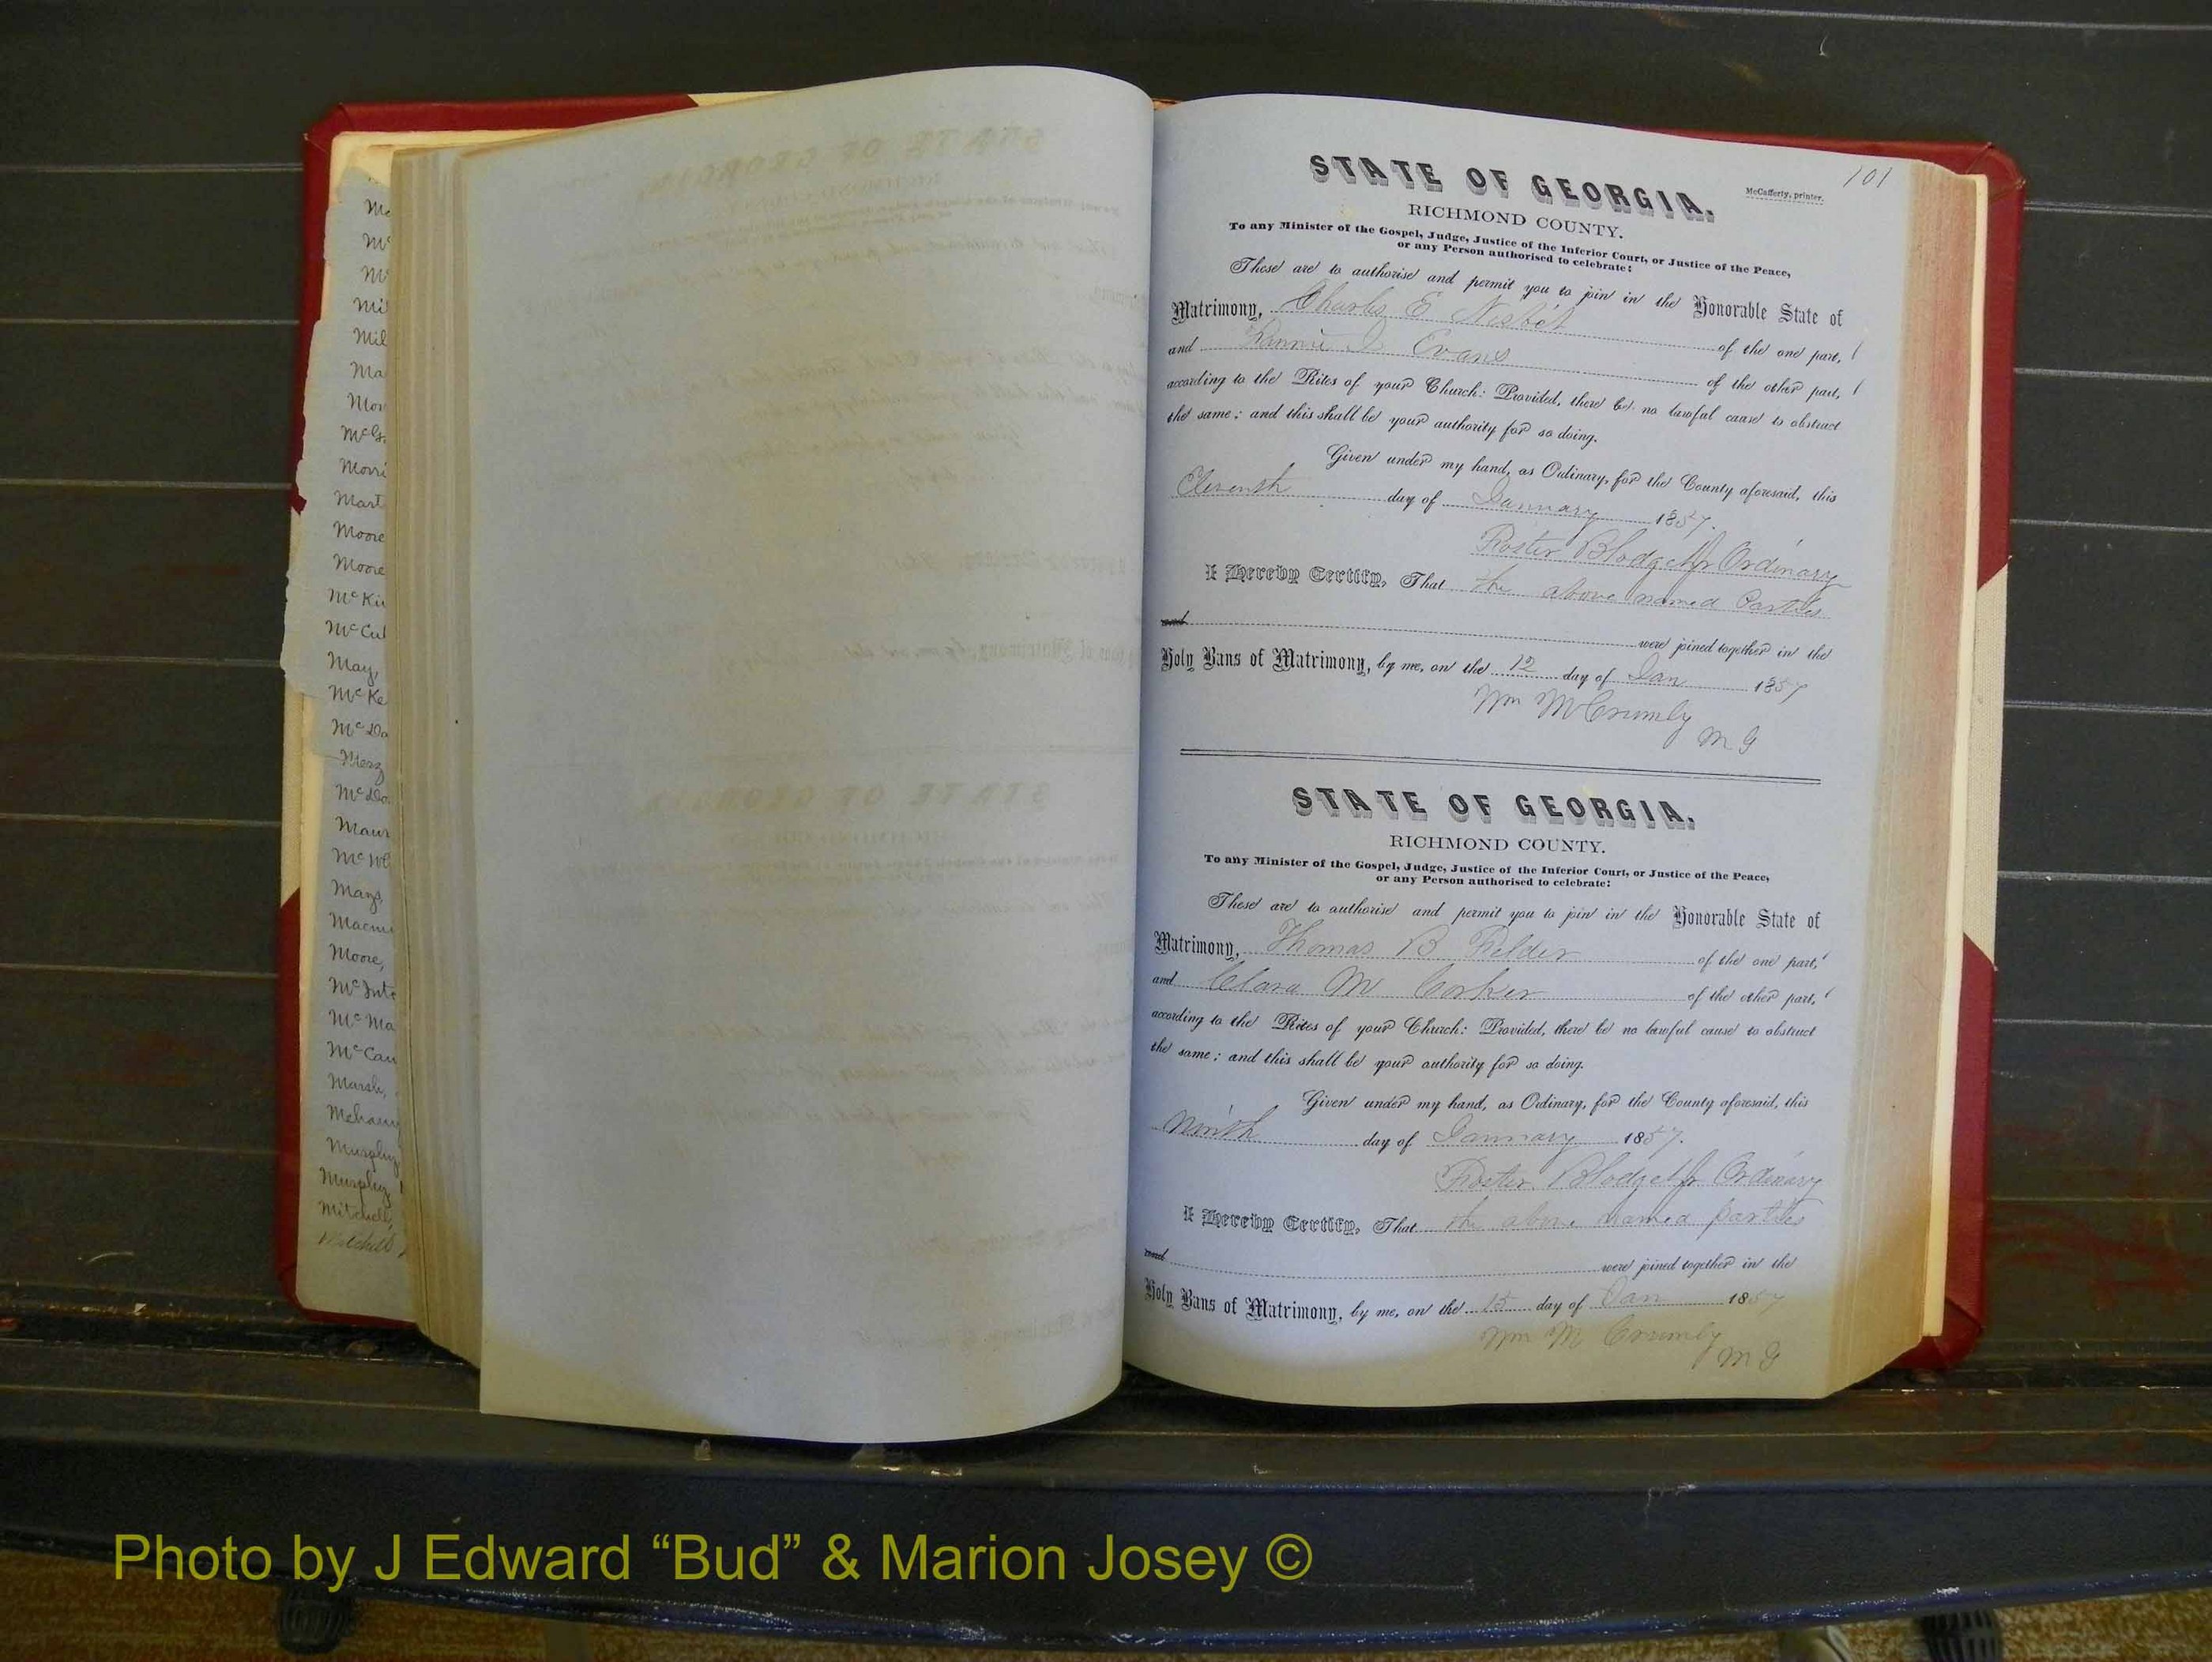 Mil
Ma
Morri
Mart
Moore
Moore
McKi
McCul
May,
McKe
McDa
Merz
McDo
Maur
Mays,
Moore,
McInt
McMa
McCau
Marsh,
Murphy
Murphy
Mitchell,
Mitchell
101
STATE OF GEORGIA.
McCafferty, printer.
RICHMOND COUNTY.
To any Minister of the Gospel, Judge, Justice of the Inferior Court, or Justice of the Peace,
or any Person authorised to celebrate:
These are to authorise and permit you to join in the Honorable State of
Matrimony, Charles E Nisbet of the one part,
and Fannie I Evans of the other part,
according to the Rites of your Church: Provided, there be no lawful cause to obstruct
the same; and this shall be your authority for so doing.
Given under my hand, as Ordinary, for the County aforesaid, this
Eleventh day of January 1857.
Foster Blodget Jr Ordinary
I Hereby Certify, That the above named Parties
and were joined together in the
Holy Bans of Matrimony, by me, on the 12 day of Jan 1857
Wm M Crumly
M G
STATE OF GEORGIA.
RICHMOND COUNTY.
To any Minister of the Gospel, Judge, Justice of the Inferior Court, or Justice of the Peace,
or any Person authorised to celebrate:
These are to authorise and permit you to join in the Honorable State of
Matrimony, Thomas B Fielder of the one part,
and Clara M Corker of the other part,
according to the Rites of your Church: Provided, there be no lawful cause to obstruct
the same; and this shall be your authority for so doing.
Given under my hand, as Ordinary, for the County aforesaid, this
Ninth day of January 1857.
Foster Blodget Jr Ordinary
I Hereby Certify, That the above named parties
and were joined together in the
Holy Bans of Matrimony, by me, on the 15 day of Jan 1857
Wm M Crumly
M G
Photo by J Edward “Bud” & Marion Josey ©